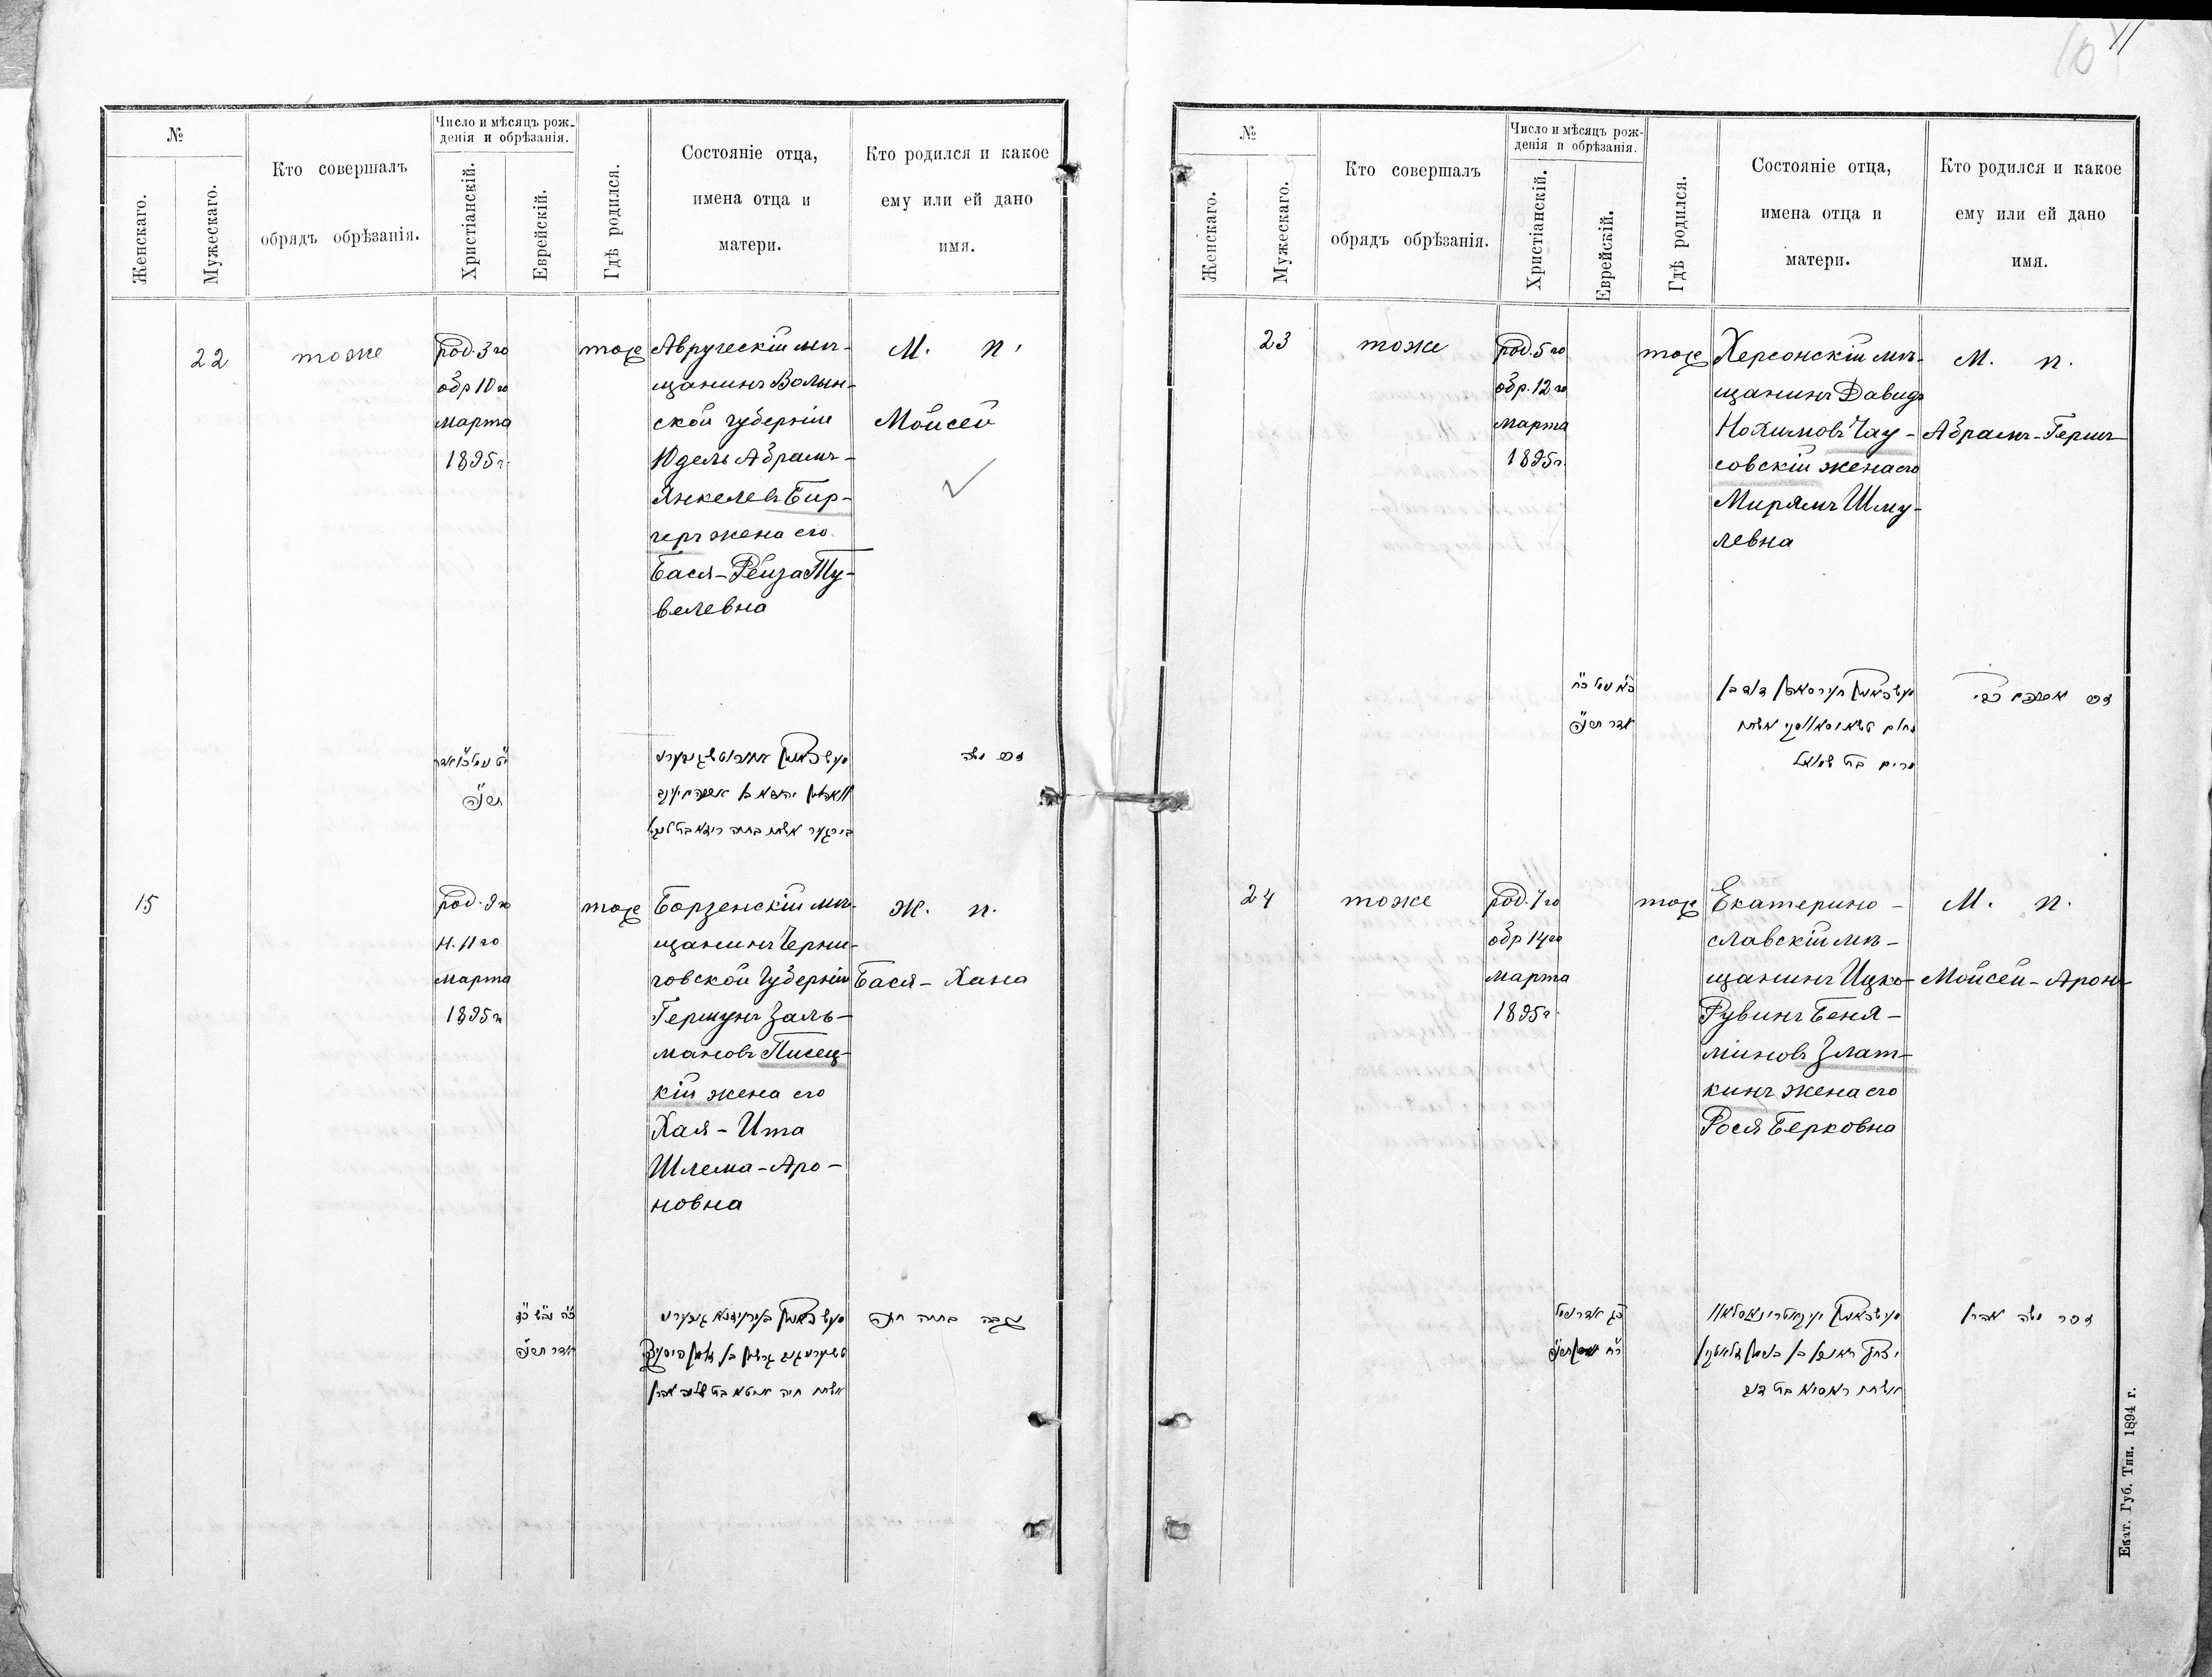 10
11
№
Женскаго.
Мужескаго.
Кто совершалъ
обрядъ обрѣзанія.
Число и мѣсяцъ рож-
денія и обрѣзанія.
Христіанскій.
Еврейскій.
Гдѣ родился.
Состояніе отца,
имена отца и
матери.
Кто родился и какое
ему или ей дано
имя.
22
тоже
род. 3го
обр 10го
марта
1895г.
тоже
Авруческій мѣ-
щанинъ Волын-
ской губерніи
Юдель Абрамъ-
Янкелевъ Бир-
геръ жена его
Бася-Рейза Ту-
велевна
М. п.
Мойсей
תרנ״ה
זכר משה
15
род. 9го
н. 11го
марта
1895г
тоже
Борзенскій мѣ-
щанинъ Черни-
говской Губерніи
Гершунъ Заль-
мановъ Писец-
кій жена его
Хая-Ита
Шлема-Аро-
новна
Ж. п.
Бася-Хана
אדר תרנ״ה
נקבה בתיה חנה
№
Женскаго.
Мужескаго.
Кто совершалъ
обрядъ обрѣзанія.
Число и мѣсяцъ рож-
денія и обрѣзанія.
Христіанскій.
Еврейскій.
Гдѣ родился.
Состояніе отца,
имена отца и
матери.
Кто родился и какое
ему или ей дано
имя.
23
тоже
род. 5го
обр. 12го
марта
1895г.
тоже
Херсонскій мѣ-
щанинъ Давидъ
Нохимовъ Чау-
совскій жена его
Мирямъ Шму-
левна
М. п.
Абрамъ-Герш
אדר תרנ״ה
מרים בת שמואל
24
тоже
род. 7го
обр 14го
марта
1895г.
тоже
Екатерино-
славскій мѣ-
щанинъ Ицко-
Рувинъ Беня-
миновъ Злат-
кинъ жена его
Рося Берковна
М. п.
Мойсей-Аронъ
זכר משה אהרן
Екат. Губ. Тип. 1894 г.